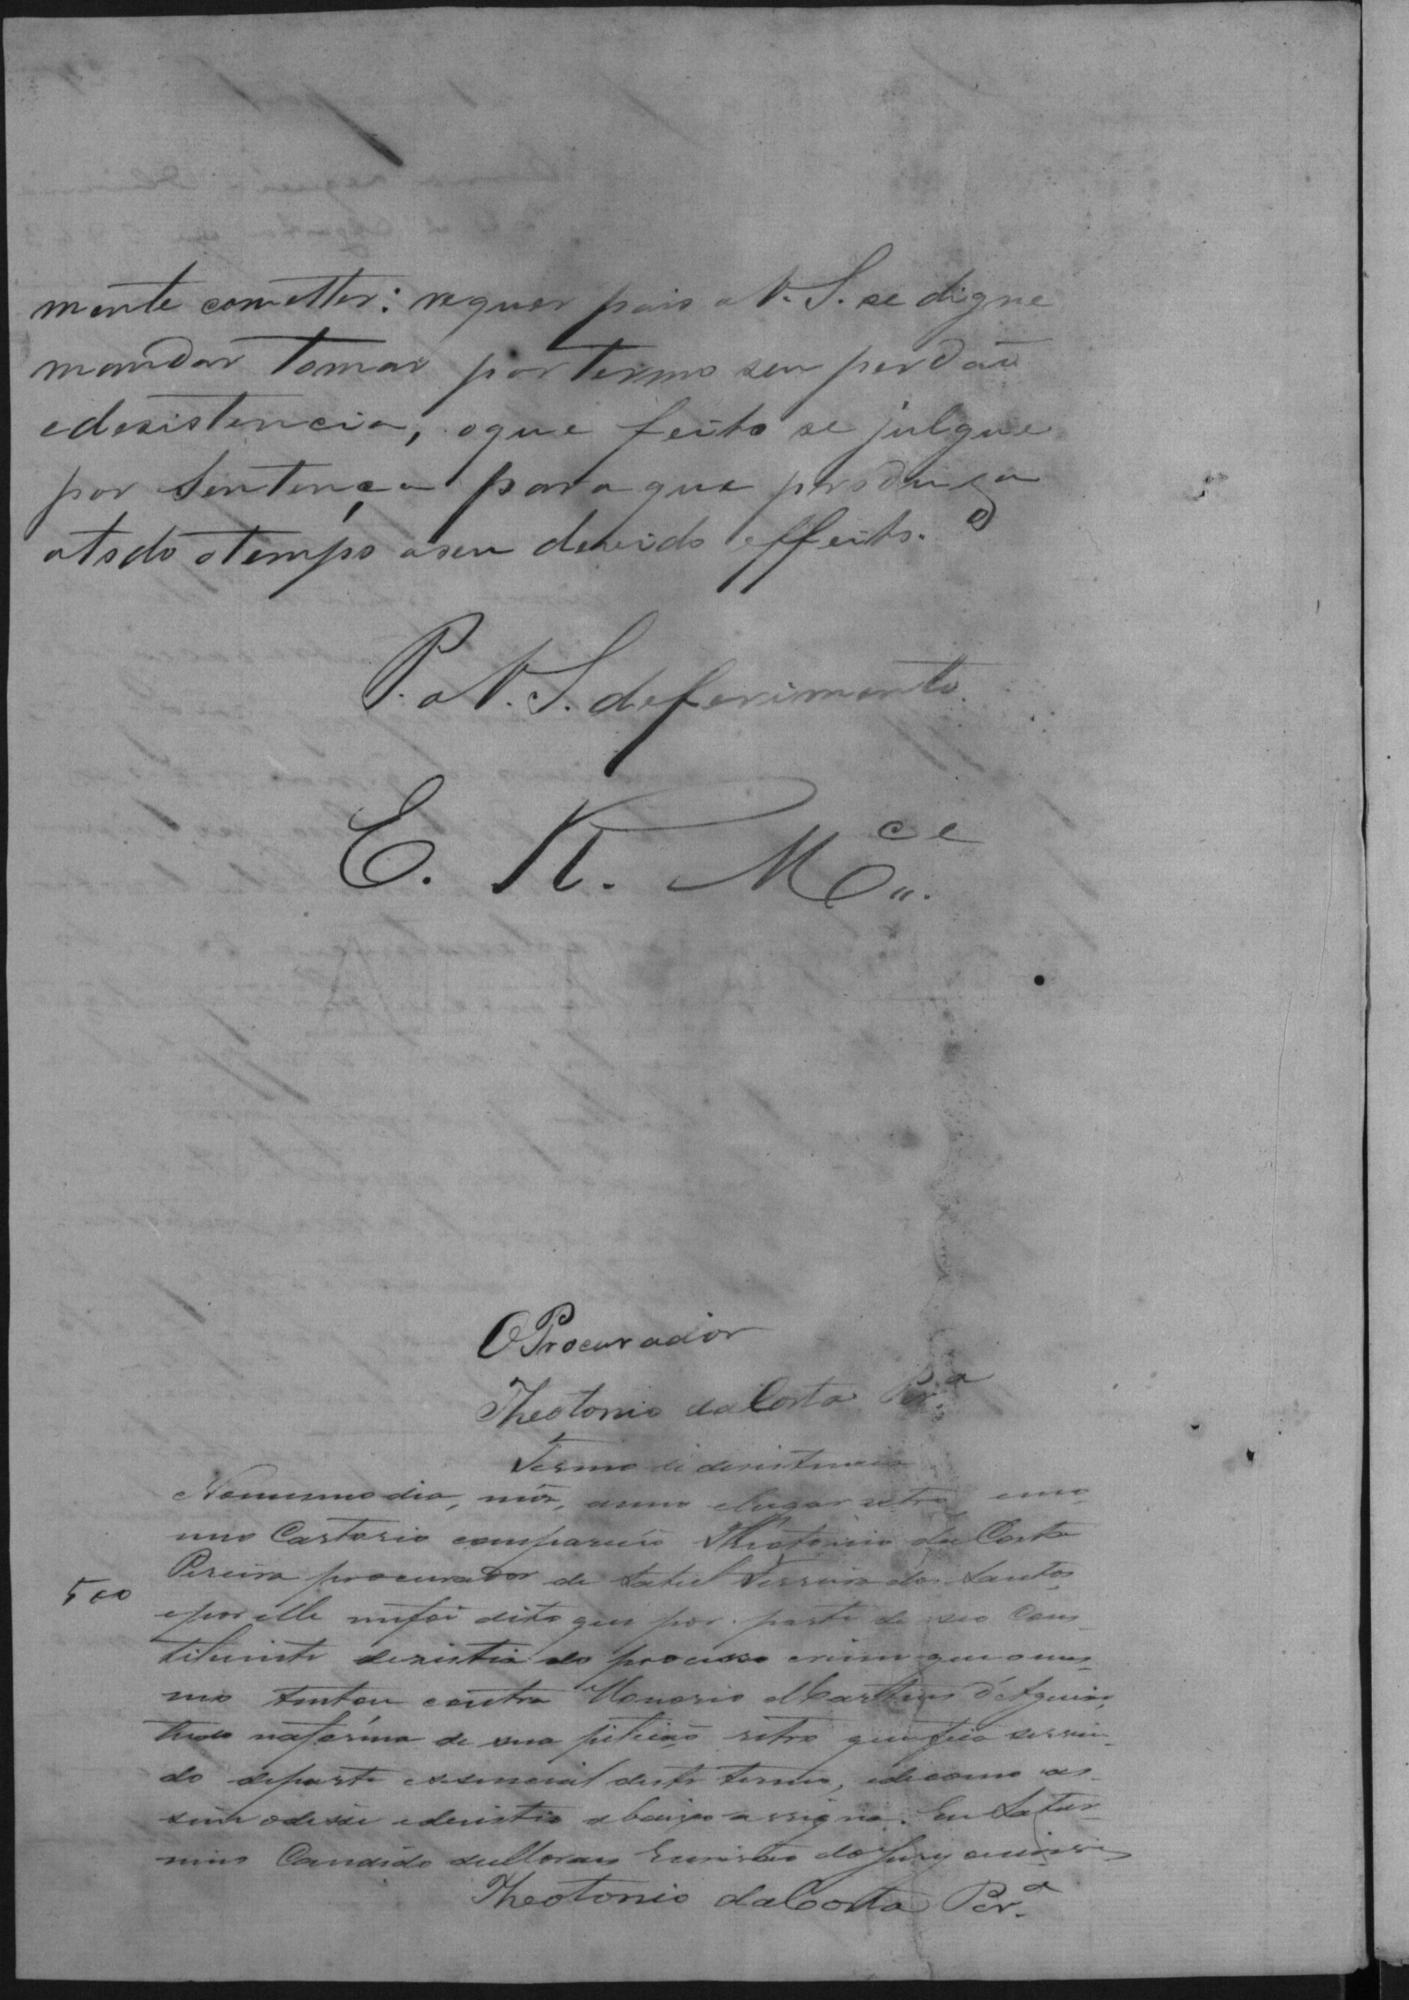 mente cometter: requer pois a V. S. se digne
mandar tomar por termo seu perdão
edesistencia, oque feito se julgue
por Sentença para que produisa
atodo otempo oseu devido effeito.
P. a V. S. deferimento
E. R. M.ce
OProcurador
Theotonio da Costa Per.a
Termo de desistencia
Nomesmo dia, mês, anno elugar retro, em o
meo Cartorio compareceo Theotonio da Costa
Pereira procurador de Ferreira dos Santos
500
epor elle mefoi dito que por parte de seo Cons-
tituinte desistia do processo crime que o mes-
mo tentou contra Honorio Martins d'Aguiar,
tudo naforma de sua petição retro que fica servin-
do departe essencial deste termo, edecomo as-
sim odisse edesistio abaixo assigna. Eu Satur-
nino Candido de Moraes Escrivão do Jury o escrevi
Theotonio da Costa Per.a